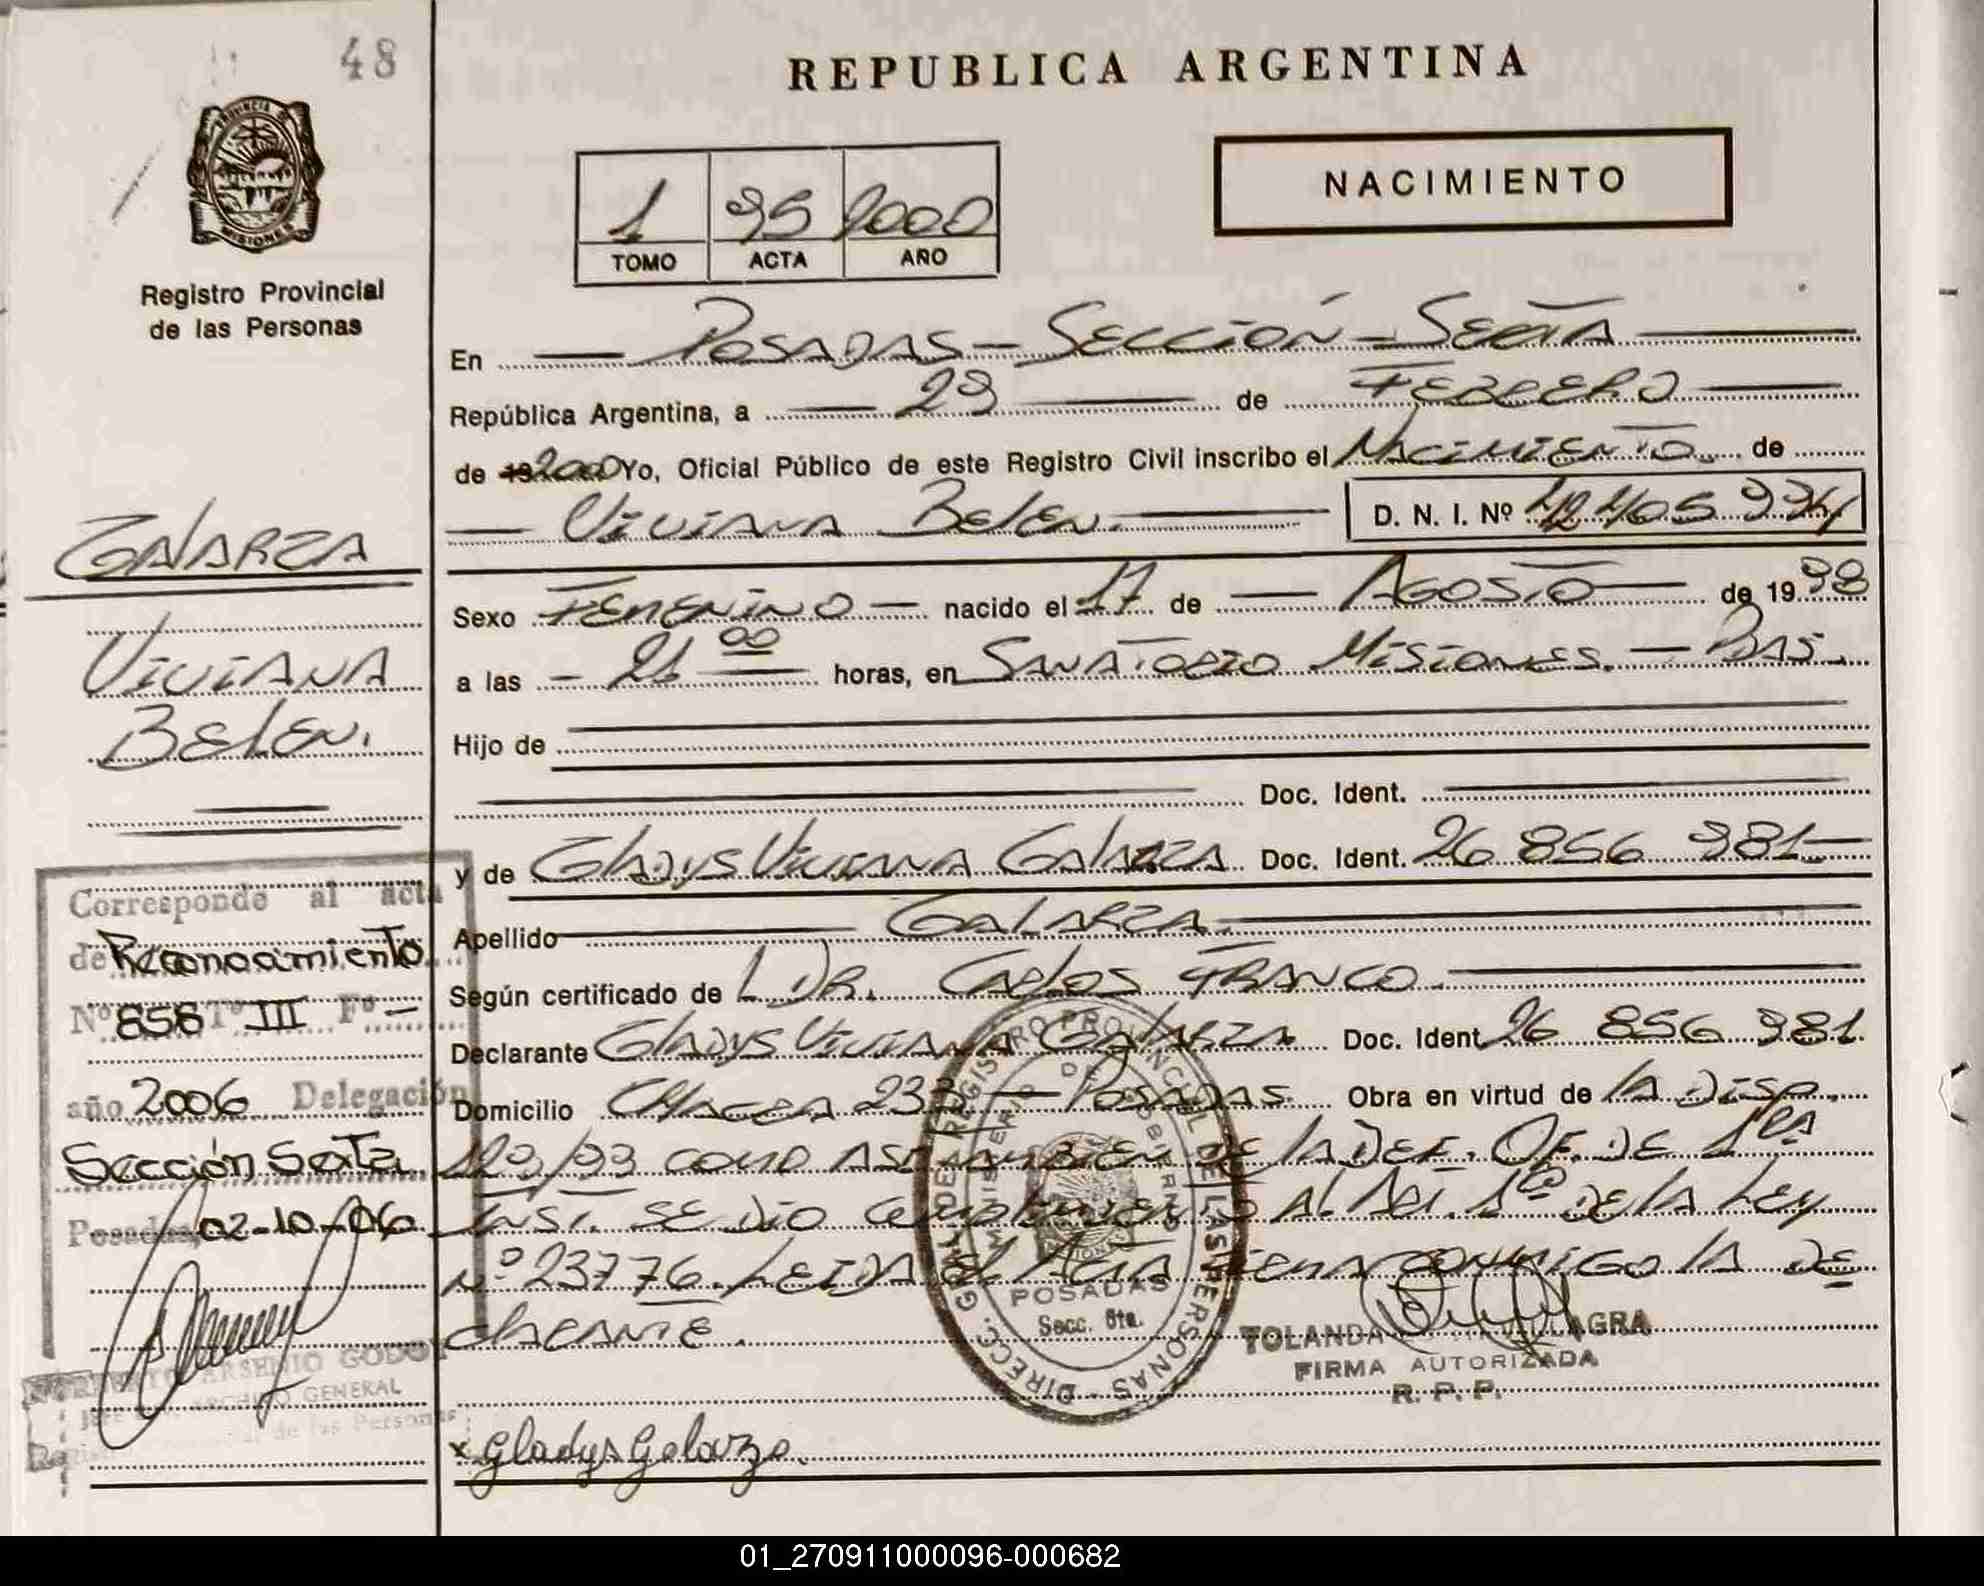 48
PROVINCIA DE
MISIONES
Registro Provincial
de las Personas
REPUBLICA ARGENTINA
NACIMIENTO
1 95 2000
TOMO ACTA AÑO
En Posadas - Sección - Sexta
República Argentina, a 29 de Febrero
de 19 2000 Yo, Oficial Público de este Registro Civil inscribo el Nacimiento de
Viviana Belen. D. N. I. Nº 42.405.994
Sexo Femenino - nacido el 17 de Agosto de 1998
a las - 21 00 horas, en Sanatorio Misiones. - Pdas.
Hijo de
Doc. Ident.
y de Gladys Viviana Galarza Doc. Ident. 26 856 981 -
Apellido Galarza.
Según certificado de Dr. Carlos Franco.
Declarante Gladys Viviana Galarza Doc. Ident. 26 856 981.
Domicilio Chacra 233 - Posadas. Obra en virtud de la Disp.
129/99 como así también de la Def. Of. de 1ra
Inst. se dio cumplimiento al Art. 1º de la Ley
Nº 23776. Leida el Acta firma conmigo la de
clarante.
x Gladys Galarza.
Galarza
Viviana
Belen.
Corresponde al acta
de Reconocimiento
Nº 858 Tº III Fº -
año 2006 Delegación
Sección Sexta
Posadas, 02-10-06
ARSENIO GODOY
ARCHIVO GENERAL
de las Personas
DIRECC. GRAL. DE REGISTRO PROVINCIAL DE LAS PERSONAS
MINISTERIO DE GOBIERNO
POSADAS
Secc. 6ta.
YOLANDA VILLAGRA
FIRMA AUTORIZADA
R. P. P.
01_270911000096-000682